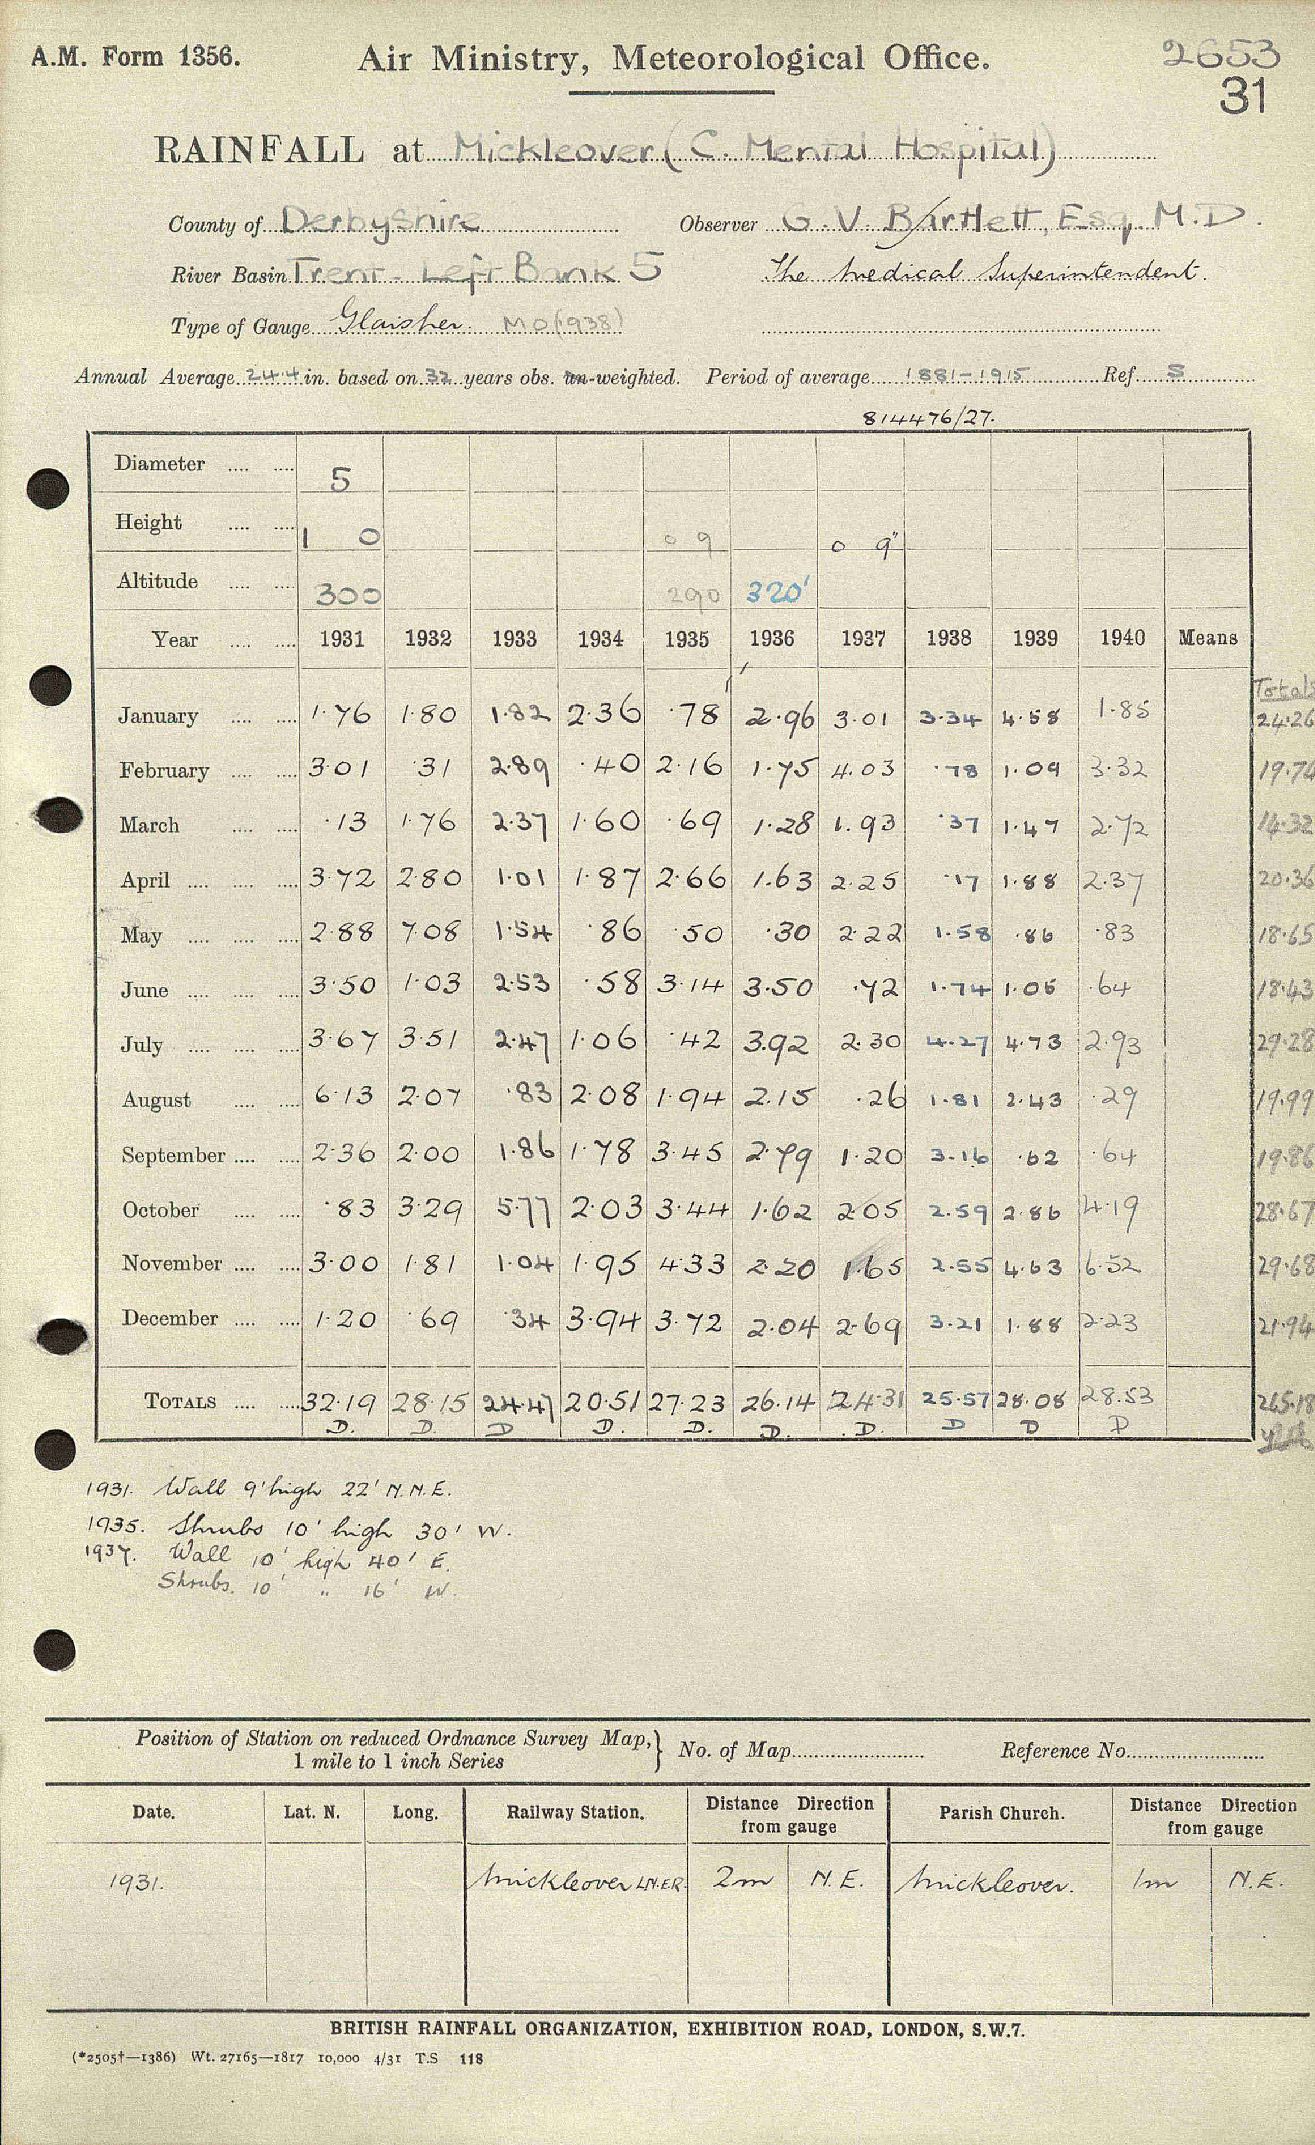 A.M. Form 1356. Air Ministry, Meteorological Office. 2653
31
RAINFALL at Mickleover (C. Mental Hospital)
County of Derbyshire Observer G. V. Bartlett, Esq. M.D.
River Basin Trent - Left Bank 5 The Medical Superintendent.
Type of Gauge Glaisher. MO(1938)
Annual Average 24.4 in. based on 32 years obs. un-weighted. Period of average 1881-1915 Ref. S
814476/27.
Diameter .... .... 5
Height .... .... 1 0 0 9 0 9"
Altitude .... .... 300 290 320'
Year .... .... 1931 1932 1933 1934 1935 1936 1937 1938 1939 1940 Means
Totals
January .... .... 1.76 1.80 1.82 2.36 .78 2.96 3.01 3.34 4.58 1.85 24.26
February .... .... 3.01 .31 2.89 .40 2.16 1.75 4.03 .78 1.09 3.32 19.74
March .... .... .13 1.76 2.37 1.60 .69 1.28 1.93 .37 1.47 2.72 14.32
April .... .... .... 3.72 2.80 1.01 1.87 2.66 1.63 2.25 .17 1.88 2.37 20.36
May .... .... .... 2.88 7.08 1.54 .86 .50 .30 2.22 1.58 .86 .83 18.65
June .... .... .... 3.50 1.03 2.53 .58 3.14 3.50 .72 1.74 1.05 .64 18.43
July .... .... .... 3.67 3.51 2.47 1.06 .42 3.92 2.30 4.27 4.73 2.93 29.28
August .... .... 6.13 2.07 .83 2.08 1.94 2.15 .26 1.81 2.43 .29 19.99
September .... .... 2.36 2.00 1.86 1.78 3.45 2.79 1.20 3.16 .62 .64 19.86
October .... .... .83 3.29 5.77 2.03 3.44 1.62 2.05 2.59 2.86 4.19 28.67
November .... .... 3.00 1.81 1.04 1.95 4.33 2.20 1.65 2.55 4.63 6.52 29.68
December .... .... 1.20 .69 .34 3.94 3.72 2.04 2.69 3.21 1.88 2.23 21.94
TOTALS .... .... 32.19 28.15 24.47 20.51 27.23 26.14 24.31 25.57 28.08 28.53 265.18
D. D. D D. D. D. D. D D D
1931. Wall 9' high 22' N.N.E.
1935. Shrubs 10' high 30' W.
1937. Wall 10' high 40' E.
Shrubs. 10' " 16' W.
Position of Station on reduced Ordnance Survey Map, 1 mile to 1 inch Series } No. of Map Reference No.
Date. Lat. N. Long. Railway Station. Distance Direction from gauge Parish Church. Distance Direction from gauge
1931. Mickleover L.N.E.R. 2m N.E. Mickleover. 1m N.E.
BRITISH RAINFALL ORGANIZATION, EXHIBITION ROAD, LONDON, S.W.7.
(*2505†—1386) Wt. 27165—1817 10,000 4/31 T.S 118